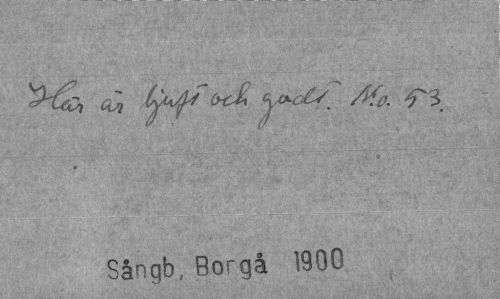 Här är ljuft och godt. N:o. 53.
Sångb, Borgå 1900